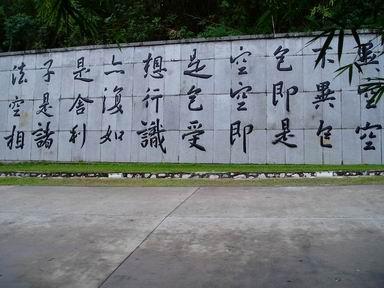 異空空
不異色
色即是
空空即
是色受
想行識
亦復如
是舍利
子是諸
法空相